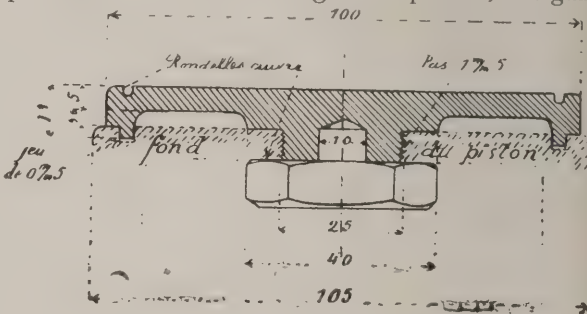 100
Rondelles cuivre
Pas 1 m/m 5
jeu
de 0 m/m 5
fond
10
du piston
25
40
105